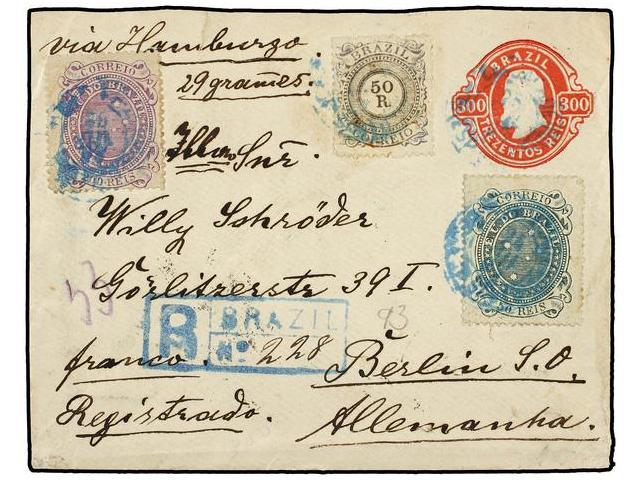 via Hamburgo.
29 grames.
CORREIO
BRAZIL
50
R.
CORREIO
BRAZIL
300 300
TREZENTOS REIS
Illmo Snr.
Willy Schröder
Görlitzerstr 39 I.
CORREIO
E.U. DO BRAZIL
REIS
R BRAZIL
Nº 228
93
franco.
Berlin S.O.
Registrado.
Allemanha.